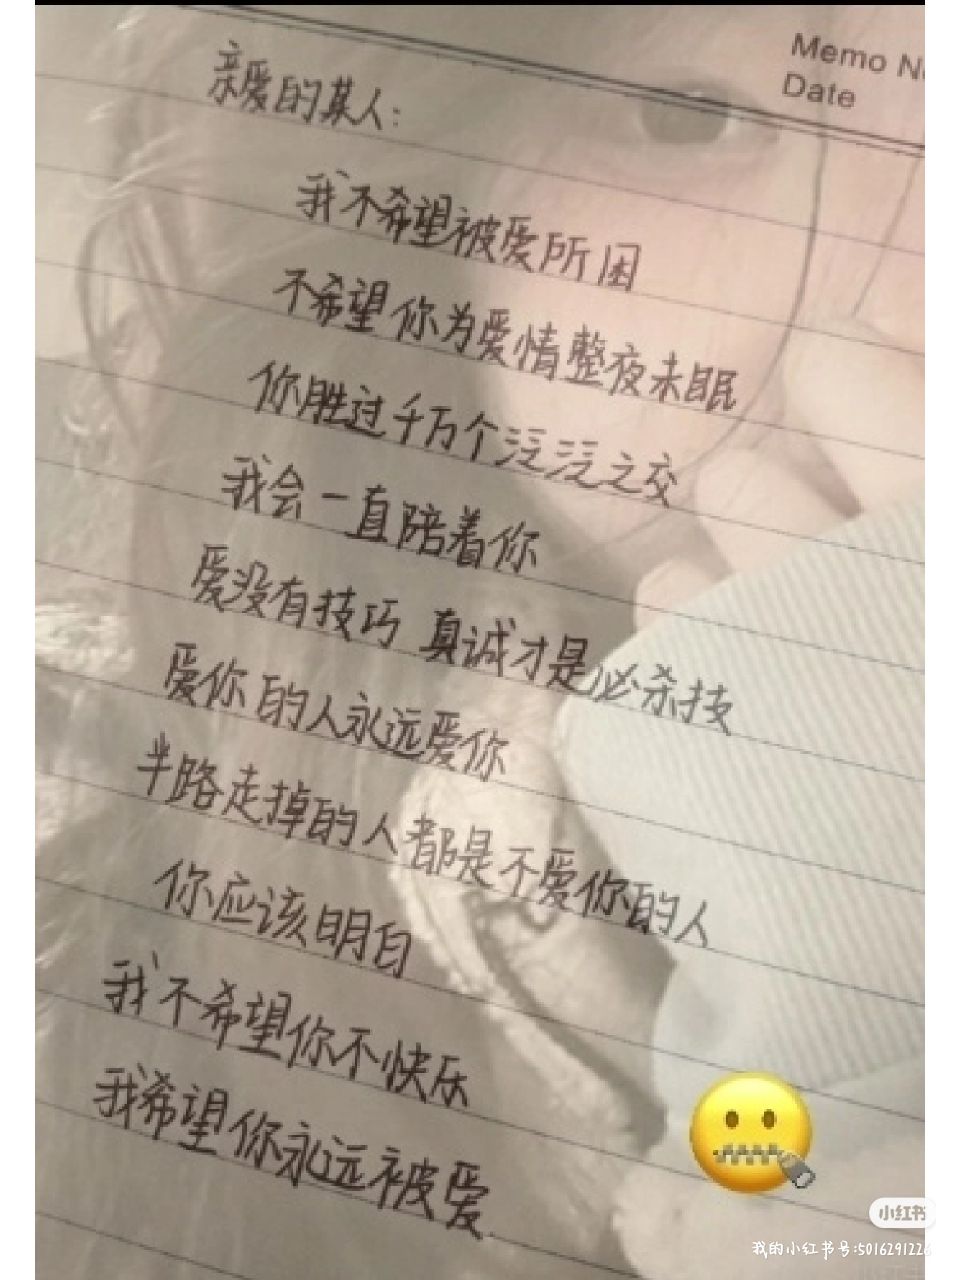 Memo No
Date
亲爱的某人：
我不希望被爱所困
不希望你为爱情整夜未眠
你胜过千万个泛泛之交
我会一直陪着你
爱没有技巧 真诚才是必杀技
爱你的人永远爱你
半路走掉的人都是不爱你的人
你应该明白
我不希望你不快乐
我希望你永远被爱
小红书
我的小红书号:5016291226